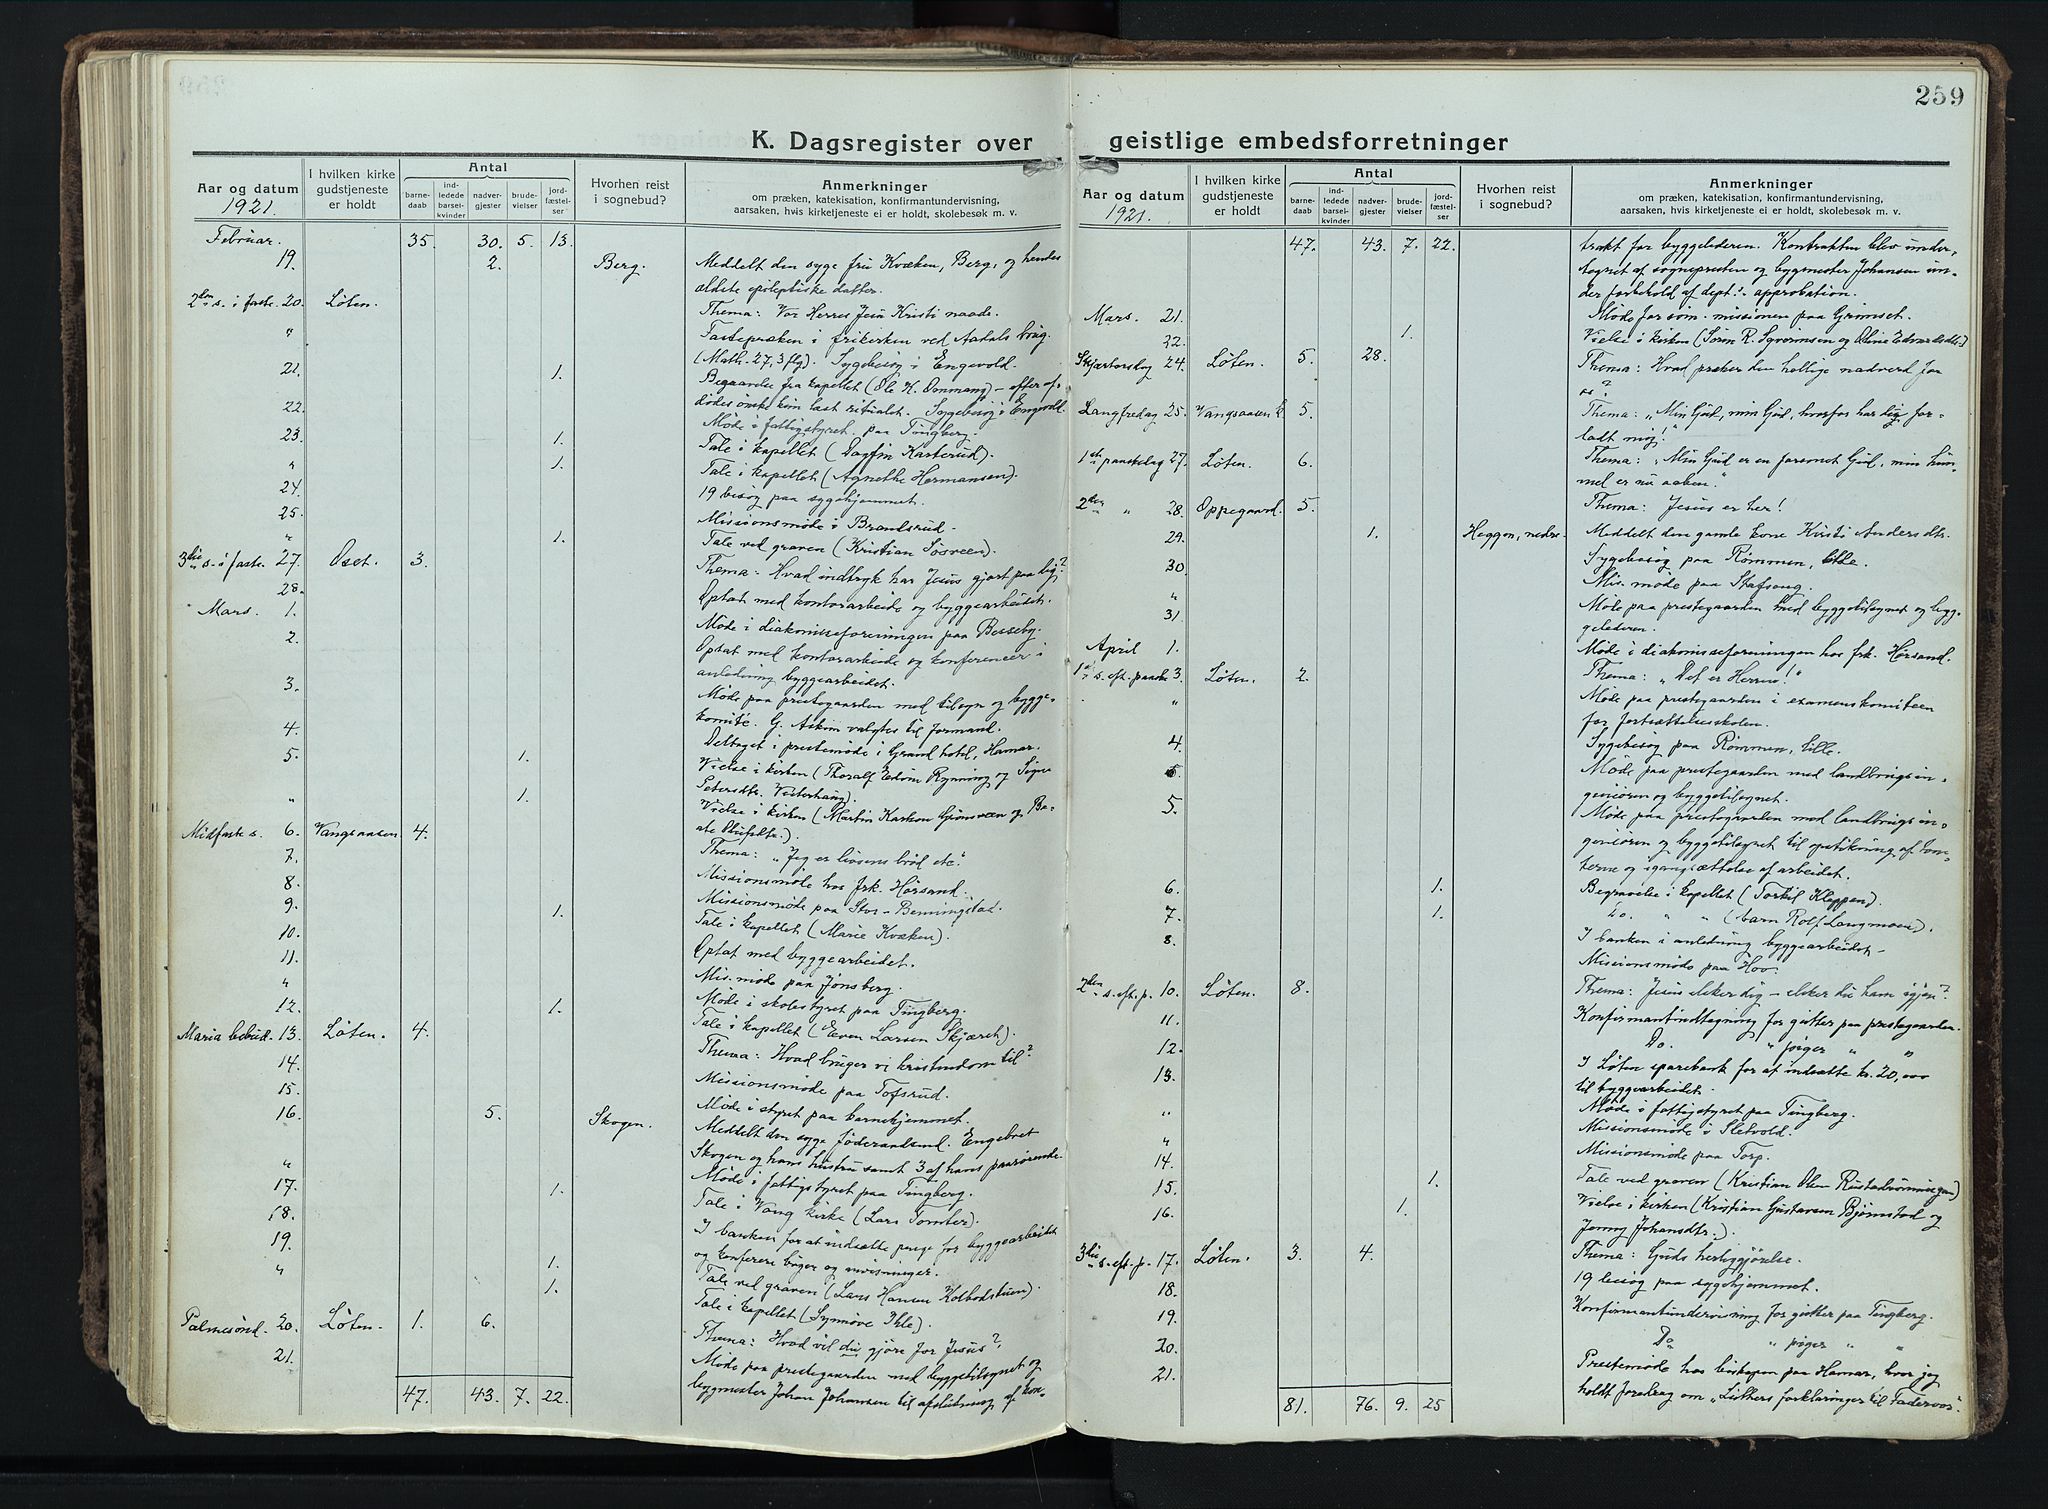 259
K. Dagsregister over geistlige embedsforretninger
Aar og datum
1921.
I hvilken kirke gudstjeneste er holdt
Antal
barne-daab
ind-ledede barsel-kvinder
nadver-gjester
brude-vielser
jord-fæstel-ser
Hvorhen reist i sognebud?
Anmerkninger
om præken, katekisation, konfirmantundervisning,
aarsaken, hvis kirketjeneste ei er holdt, skolebesøk m. v.
Februar. 35. 30. 5. 13.
19. 2. Berg. Meddelt den syge fru Kvæken, Berg, og hendes
ældste epileptiske datter.
2den s. i faste. 20. Løten. Thema: Vor Herres Jesu Kristi naade.
" Fastepræken i frikirken ved Aadals brug.
(Math. 27, 3 flg). Sygebesøg i Engevold.
21. 1. Begravelse fra kapellet (Ole K. Ommang) - efter af-
dødes ønske kun læst ritualet. Sygebesøg i Engevold.
22. Møde i fattigstyret paa Tingberg.
23. 1. Tale i kapellet (Dagfin Kasterud).
" 1. Tale i kapellet (Agnethe Hermansen).
24. 19 besøg paa sygehjemmet.
25. Missionsmøde i Brandsrud.
" 1. Tale ved graven (Kristian Løsveen).
3die s. i faste. 27. Oset. 3. Thema - Hvad indtryk har Jesus gjort paa dig?
28. Optat med kontorarbeide og byggearbeidet.
Mars. 1. Møde i diakonisseforeningen paa Besseby.
2. Optat med kontorarbeide og konferencer i
anledning byggearbeidet.
3. Møde paa prestegaarden med tilsyn og bygge-
komité. G. Askim valgtes til formand.
4. Deltaget i prestemøde i Grand hotel, Hamar.
5. 1. Vielse i kirken (Thoralf Edvin Rynning og Signe
Petersdtr. Vesterhaug).
" 1. Vielse i kirken (Martin Karlson Grønsveen og Be-
ate Olufsdtr.).
Midfaste s. 6. Vangsaasen 4. Thema: "Jeg er livsens brød etc."
7. Missionsmøde hos frk. Hørsand.
8. Missionsmøde paa Stor-Benningstad.
9. 1. Tale i kapellet (Marie Kvæken).
10. Optat med byggearbeidet.
11. Mis. møde paa Jønsberg.
" Møde i skolestyret paa Tingberg.
12. 1. Tale i kapellet (Even Larsen Skjæret)
Maria bebud. 13. Løten. 4. Thema: Hvad bruger vi kristendom til?
14. Missionsmøde paa Tofsrud.
15. Møde i styret paa barnehjemmet.
16. 5. Skogen. Meddelt den syge føderaadsmd. Engebret
Skogen og hans hustru samt 3 af hans paarørende.
" Møde i fattigstyret paa Tingberg.
17. 1. Tale i Vang kirke (Lars Tomter).
18. I banken for at indsætte penge for byggearbeidet
19. og konferere bøger og anvisninger.
" 1. Tale ved graven (Lars Hansen Kolbodstuen).
1. Tale i kapellet (Synnøve Ihle).
Palmesønd. 20. Løten. 1. 6. Thema: Hvad vil du gjøre for Jesus?
21. Møde paa prestegaarden med byggetilsynet og
bygmester Johan Johansen til afslutning af kon-
47. 43. 7. 22.
Aar og datum
1921.
I hvilken kirke gudstjeneste er holdt
Antal
barne-daab
ind-ledede barsel-kvinder
nadver-gjester
brude-vielser
jord-fæstel-ser
Hvorhen reist i sognebud?
Anmerkninger
om præken, katekisation, konfirmantundervisning,
aarsaken, hvis kirketjeneste ei er holdt, skolebesøk m. v.
47. 43. 7. 22. trakt for byggelederen. Kontrakten blev under-
tegnet af sognepresten og bygmester Johansen un-
der forbehold af dept.s approbation.
Mars. 21. Møde for søm. missionen paa Grimset.
22. 1. Vielse i kirken (Søren R. Syvernsen og Oline Edvardsdtr.)
Skjærtorsdag 24. Løten. 5. 28. Thema: Hvad præker den hellige nadverd for
os?
Langfredag 25. Vangsaasen k. 5. Thema: "Min Gud, min Gud, hvorfor har du for-
ladt mig!"
1ste paaskedag 27. Løten. 6. Thema: "Min Gud er en forsonet Gud, min him-
mel er nu aaben."
2den " 28. Oppegaard. 5. Thema: Jesus er her!
29. 1. Heggen, nedre. Meddelt den gamle kone Kirsti Andersdtr.
30. Sygebesøg paa Rømmen, lille.
" Mis. møde paa Stafsang.
31. Møde paa prestegaarden med byggetilsynet og byg-
gelederen.
April 1. Møde i diakonisseforeningen hos frk. Hørsand.
1ste s. eft. paaske 3. Løten. 2. Thema: "Det er Herren!"
" Møde paa prestegaarden i examenskomiteen
for fortsættelsesskolen.
4. Sygebesøg paa Rømmen, lille.
5. Møde paa prestegaarden med landbrugsin-
geniøren og byggetilsynet.
5. Møde paa prestegaarden med landbrugsin-
geniøren og byggetilsynet til opstikning af tom-
terne og igangsættelse af arbeidet.
6. 1. Begravelse i kapellet (Torkil Kleppen).
7. 1. Do. " " (barn Rolf Langmoen).
8. I banken i anledning byggearbeidet.
Missionsmøde paa Hov.
2den s. eft. p. 10. Løten. 8. Thema: Jesus elsker dig - elsker du ham igjen?
11. Konfirmantindtagning for gutter paa prestegaarden.
12. Do. " piger " "
13. I Løten sparebank for at indsætte kr. 20,000
til byggearbeidet.
" Møde i fattigstyret paa Tingberg.
" Missionsmøde i Sletvold.
14. Missionsmøde paa Torp.
15. 1. Tale ved graven (Kristian Olsen Rustadrønningen)
16. 1. Vielse i kirken (Kristian Gustavsen Bjørnstad og
Jenny Johansdtr.)
3die s. eft. p. 17. Løten. 3. 4. Thema: Guds herliggjørelse.
18. 19 besøg paa sygehjemmet.
19. Konfirmantundervisning for gutter paa Tingberg.
20. Do " piger " "
21. Prestemøde hos biskopen paa Hamar, hvor jeg
holdt foredrag om "Luthers forklaringer til Fadervor".
81. 76. 9. 25